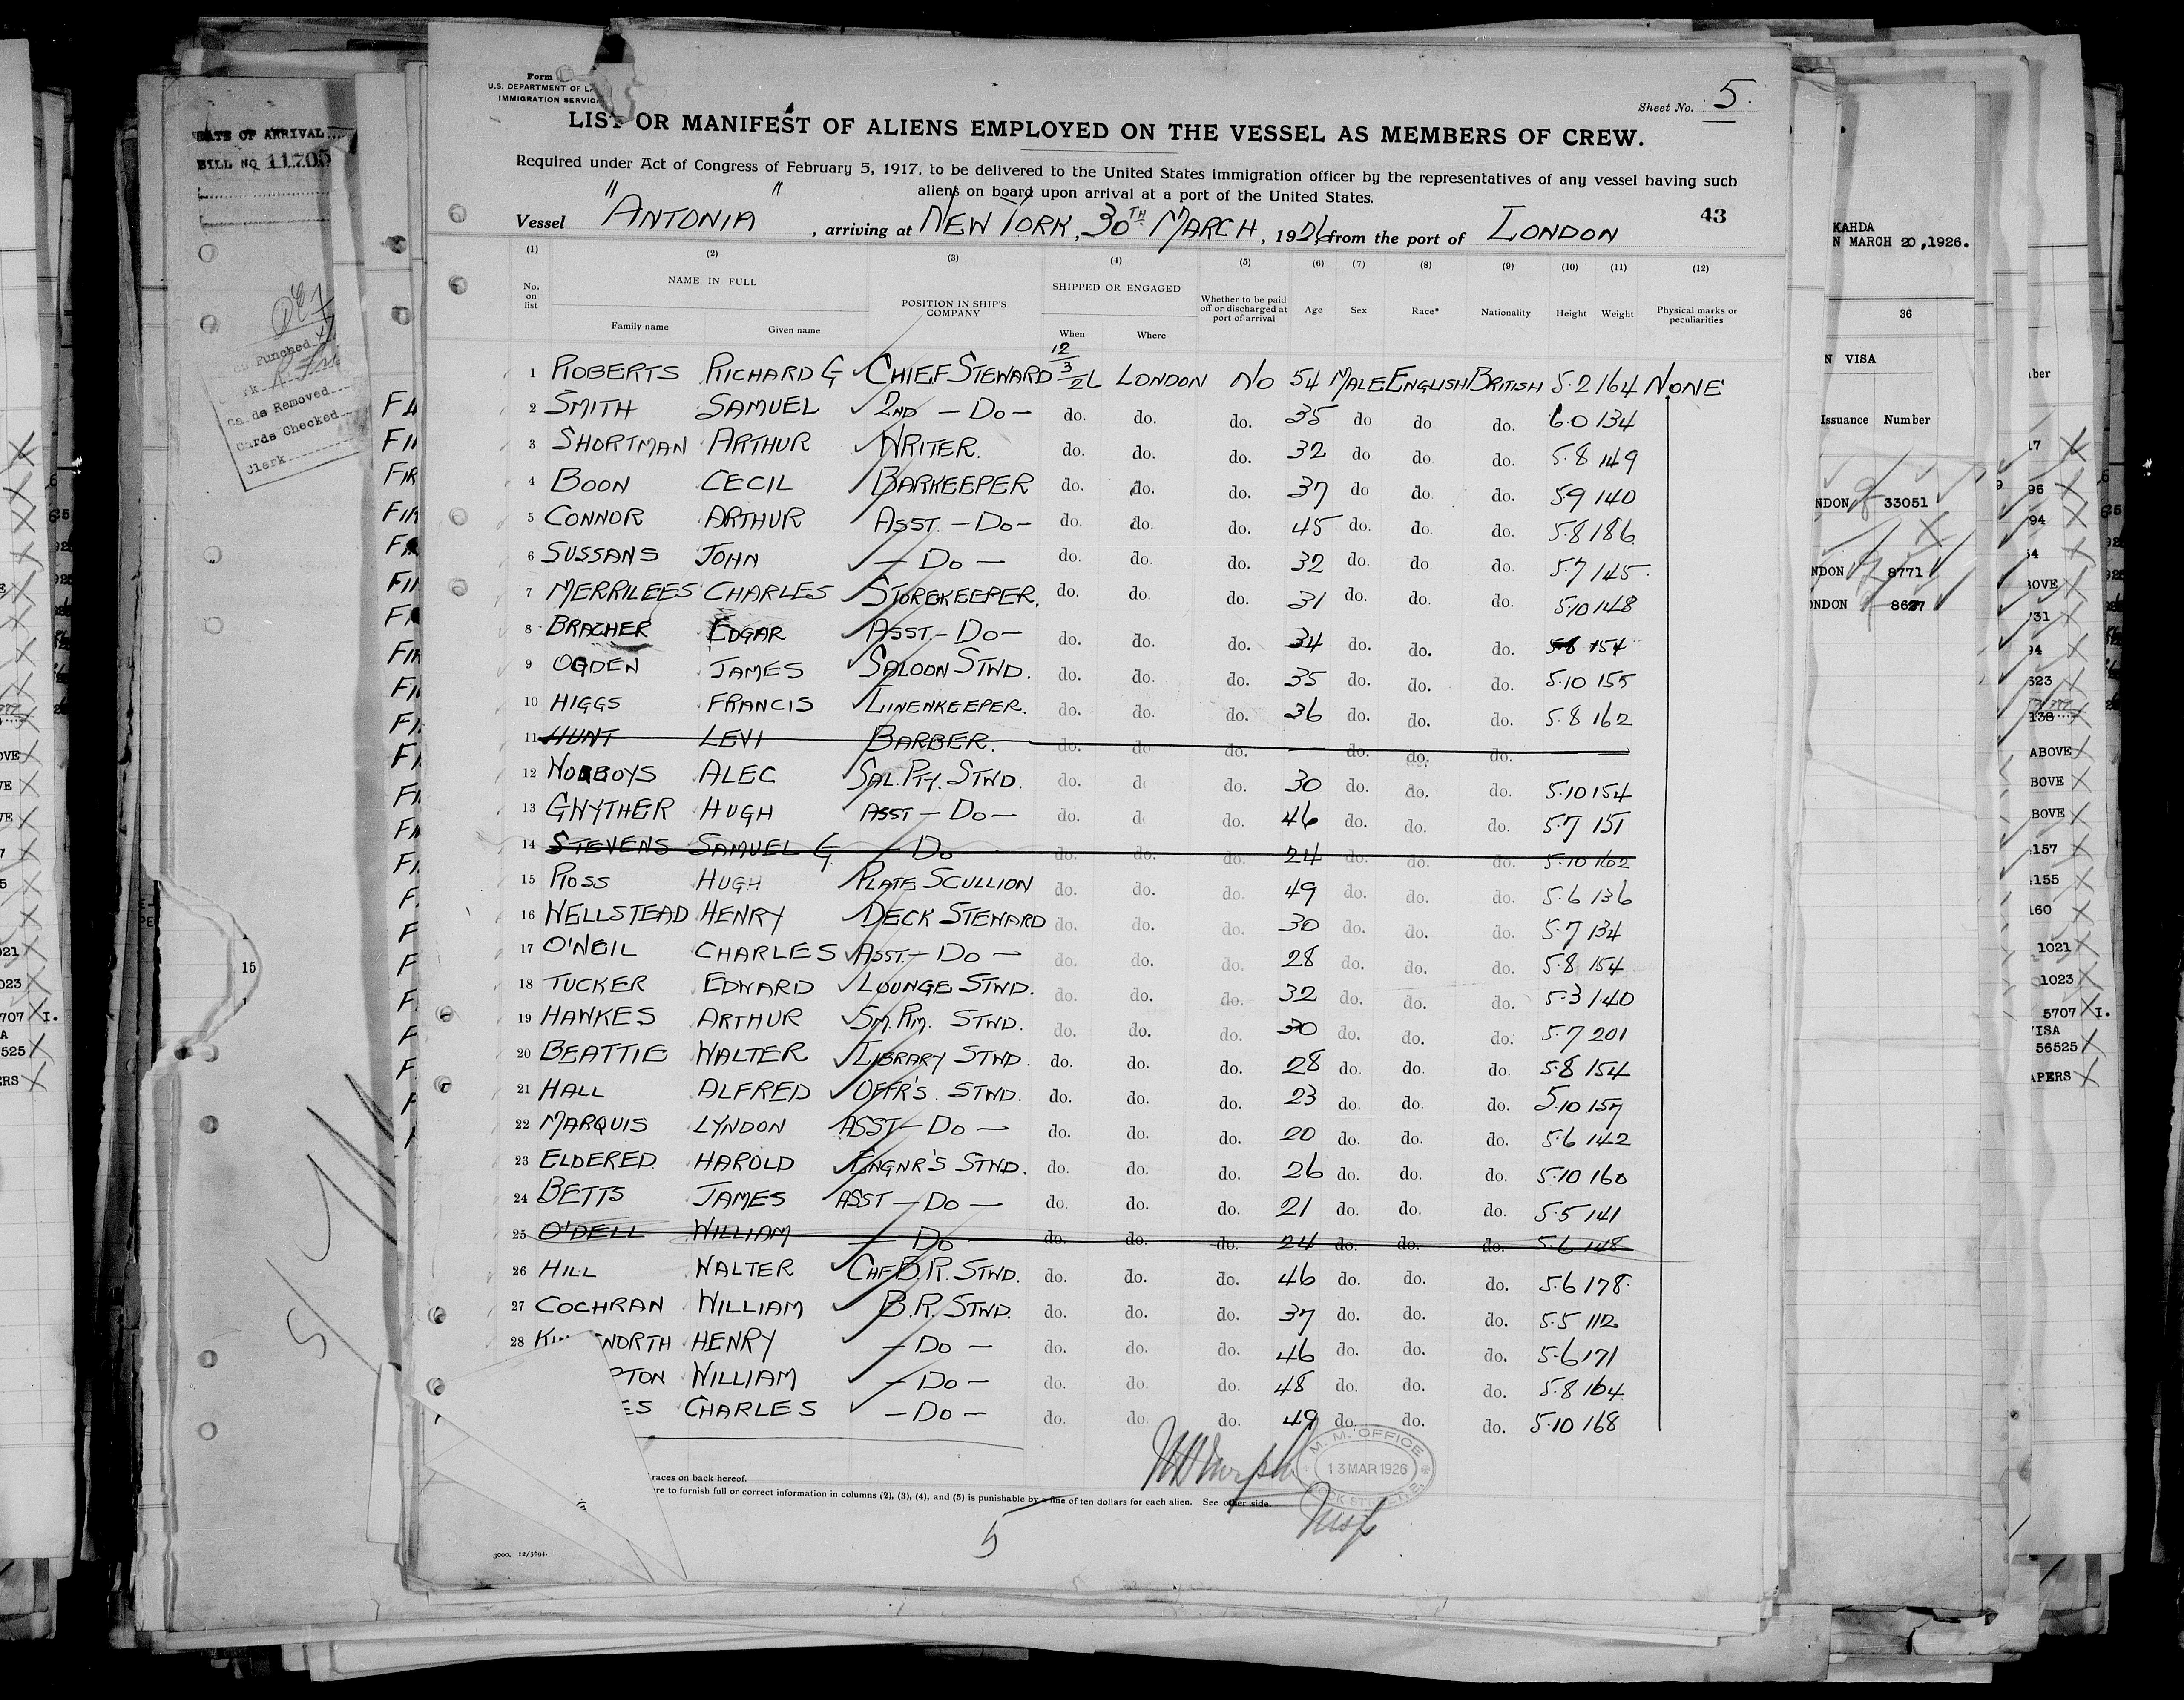 Form
U.S. DEPARTMENT OF LA
IMMIGRATION SERVIC
Sheet No. 5.
LIST OR MANIFEST OF ALIENS EMPLOYED ON THE VESSEL AS MEMBERS OF CREW.
Required under Act of Congress of February 5, 1917, to be delivered to the United States immigration officer by the representatives of any vessel having such
aliens on board upon arrival at a port of the United States.
43
Vessel "ANTONIA", arriving at NEW YORK, 30TH MARCH, 1926 from the port of LONDON
(1) (2) (3) (4) (5) (6) (7) (8) (9) (10) (11) (12)
No. on list NAME IN FULL POSITION IN SHIP'S COMPANY SHIPPED OR ENGAGED Whether to be paid off or discharged at port of arrival Age Sex Race* Nationality Height Weight Physical marks or peculiarities
Family name Given name When Where
1 ROBERTS RICHARD G CHIEF STEWARD 12/3/26 LONDON NO 54 MALE ENGLISH BRITISH 5.2 164 NONE
2 SMITH SAMUEL 2ND - DO - do. do. do. 35 do do do. 6.0 134
3 SHORTMAN ARTHUR WRITER. do. do. do. 32 do do. do. 5.8 149
4 BOON CECIL BARKEEPER do. do. do. 37 do do. do. 5.9 140
5 CONNOR ARTHUR ASST. - DO - do. do. do. 45 do. do. do. 5.8 186
6 SUSSANS JOHN - DO - do. do. do. 32 do. do do. 5.7 145.
7 MERRILEES CHARLES STOREKEEPER. do. do. do. 31 do. do. do. 5.10 148
8 BRAZHER EDGAR ASST. - DO - do. do. do. 34 do. do. do. 5.8 154
9 OGDEN JAMES SALOON STWD. do. do. do. 35 do. do. do. 5.10 155
10 HIGGS FRANCIS LINENKEEPER. do. do. do. 36 do. do. do. 5.8 162
11 HUNT LEVI BARBER. do. do do. — do. do. do. — —
12 NORBOYS ALEC SAL. PTY. STWD. do. d do. 30 do. do. do. 5.10 154
13 GWYTHER HUGH ASST - DO - do. d do. 46 do. do. do. 5.7 151
14 STEVENS SAMUEL G - DO do. do. do. 24 do. do. do. 5.10 162
15 ROSS HUGH PLATE SCULLION do. do. do. 49 do. do. do. 5.6 136
16 WELLSTEAD HENRY DECK STEWARD do. do. do. 30 do. do. do. 5.7 134
17 O'NEIL CHARLES ASST. - DO - do. do. do. 28 do. do. do. 5.8 154
18 TUCKER EDWARD LOUNGE STWD. do. do. do. 32 do. do. do. 5.3 140
19 HAWKES ARTHUR SM. RM. STWD. do. do. do. 30 do. do. do. 5.7 201
20 BEATTIE WALTER LIBRARY STWD. do. do. do. 28 do. do. do. 5.8 154
21 HALL ALFRED OFFR'S. STWD. do. do. do. 23 do. do. do. 5.10 157
22 MARQUIS LYNDON ASST - DO - do. do. do. 20 do. do. do. 5.6 142
23 ELDERED HAROLD ENGNR'S STWD. do. do. do. 26 do. do. do. 5.10 160
24 BETTS JAMES ASST - DO - do. do. do. 21 do. do. do. 5.5 141
25 O'DELL WILLIAM - DO do. do. do. 24 do. do. do. 5.6 148
26 HILL WALTER CHF B.R. STWD. do. do. do. 46 do. do. do. 5.6 178.
27 COCHRAN WILLIAM B.R. STWD. do. do. do. 37 do. do. do. 5.5 112
28 K WORTH HENRY - DO - do. do. do. 46 do. do. do. 5.6 171
PTON WILLIAM - DO - do. do. do. 48 do. do. do. 5.8 164
ES CHARLES - DO - do. do. do. 49 do. do. do. 5.10 168
M. M. OFFICE
13 MAR 1926
races on back hereof.
re to furnish full or correct information in columns (2), (3), (4), and (5) is punishable by a fine of ten dollars for each alien. See other side.
5
3000. 12/3694.
DATE OF ARRIVAL
BILL NO 11705
Punched
rk
Cards Removed
Cards Checked
Clerk
15
KAHDA
N MARCH 20, 1926.
36
N VISA
Issuance Number
NDON 33051
NDON 8771
ONDON 8627
ber
17
96
94
54
BOVE
731
94
523
138
ABOVE
BOVE
BOVE
157
155
160
1021
1023
5707 I.
VISA
56525
APERS